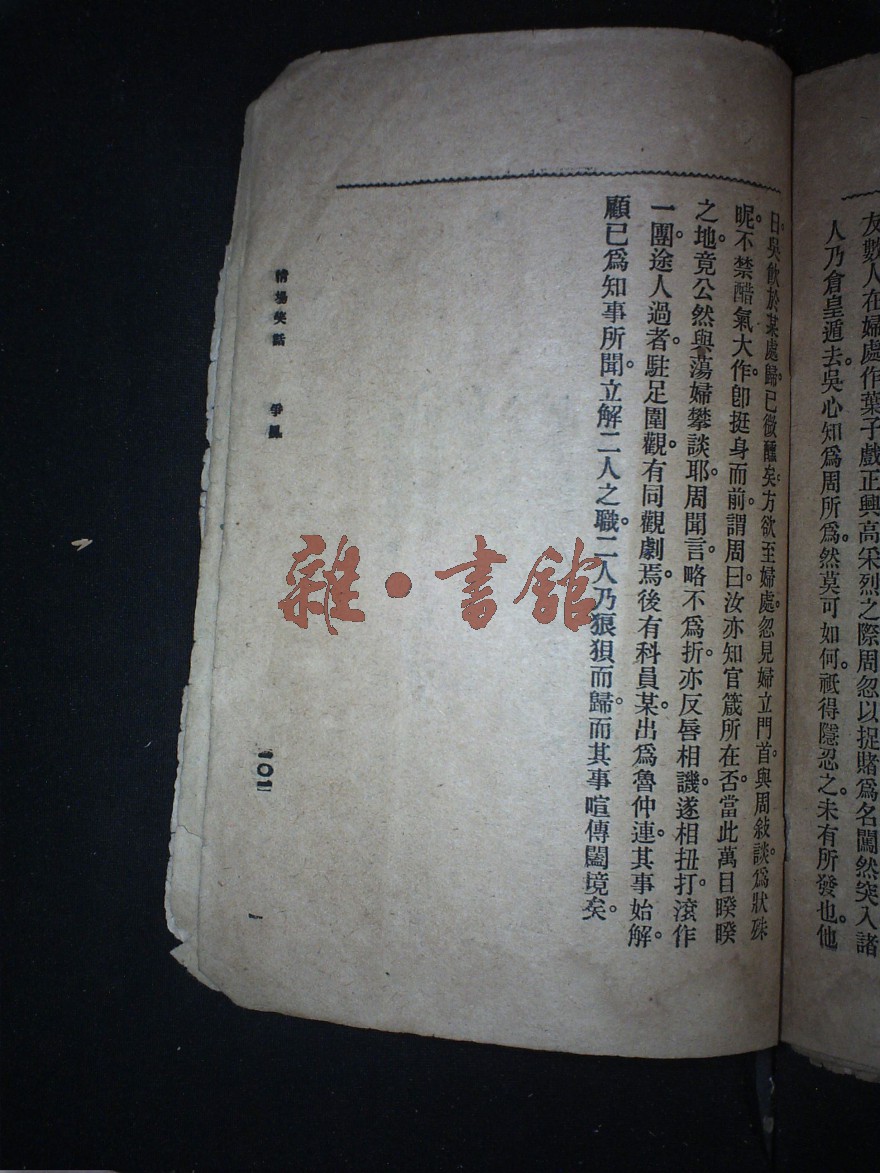 友數人在婦處作葉子戲正興高采烈之際周忽以捉賭爲名闖然突入諸
人乃倉皇遁去。吳心知爲周所爲。然莫可如何。祇得隱忍之。未有所發也。他
日。吳飲於某處歸。已微醺矣。方欲至婦處。忽見婦立門首。與周敍談。爲狀殊
昵。不禁醋氣大作。卽挺身而前。謂周曰。汝亦知官箴所在否。當此萬目睽睽
之地。竟公然與蕩婦攀談耶。周聞言。略不爲折。亦反唇相譏。遂相扭打。滾作
一團。途人過者。駐足圍觀。有同觀劇焉。後有科員某。出爲魯仲連。其事始解。
顧已爲知事所聞。立解二人之職。二人乃狼狽而歸。而其事喧傳闔境矣。
情場笑話 爭風
一〇一
雜·書館